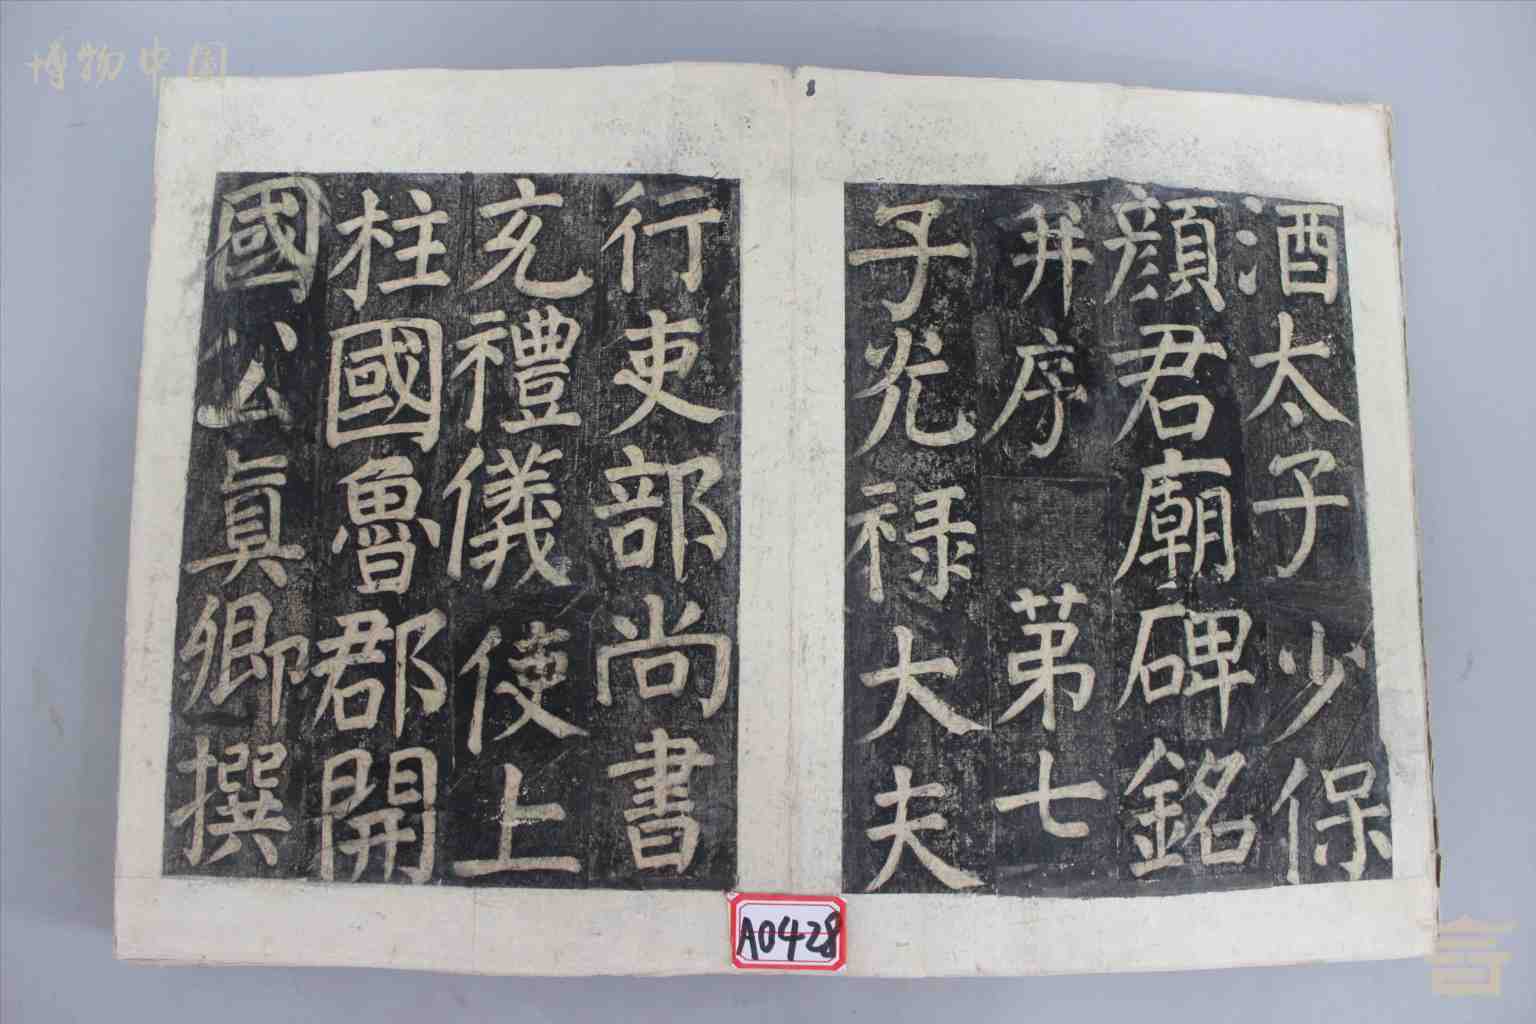 博物中国
酒太子少保
顏君廟碑銘
并序 苐七
子光禄大夫
行吏部尚書
充禮儀使上
柱國魯郡開
國公真卿撰
A0428